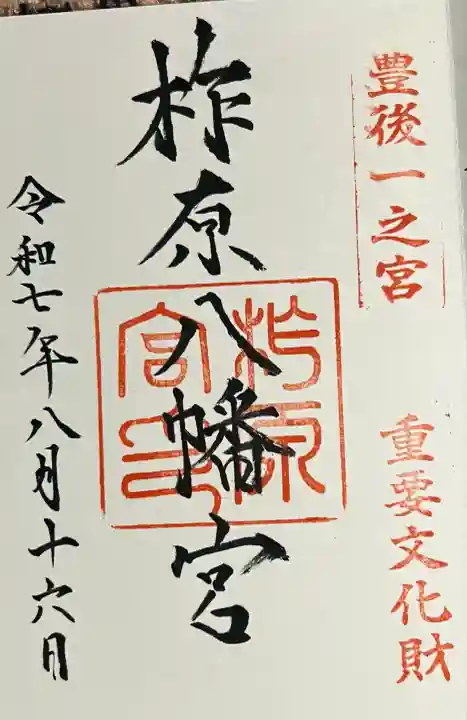 豊後一之宮
重要文化財
柞原八幡宮
柞原宮印
令和七年八月十六日